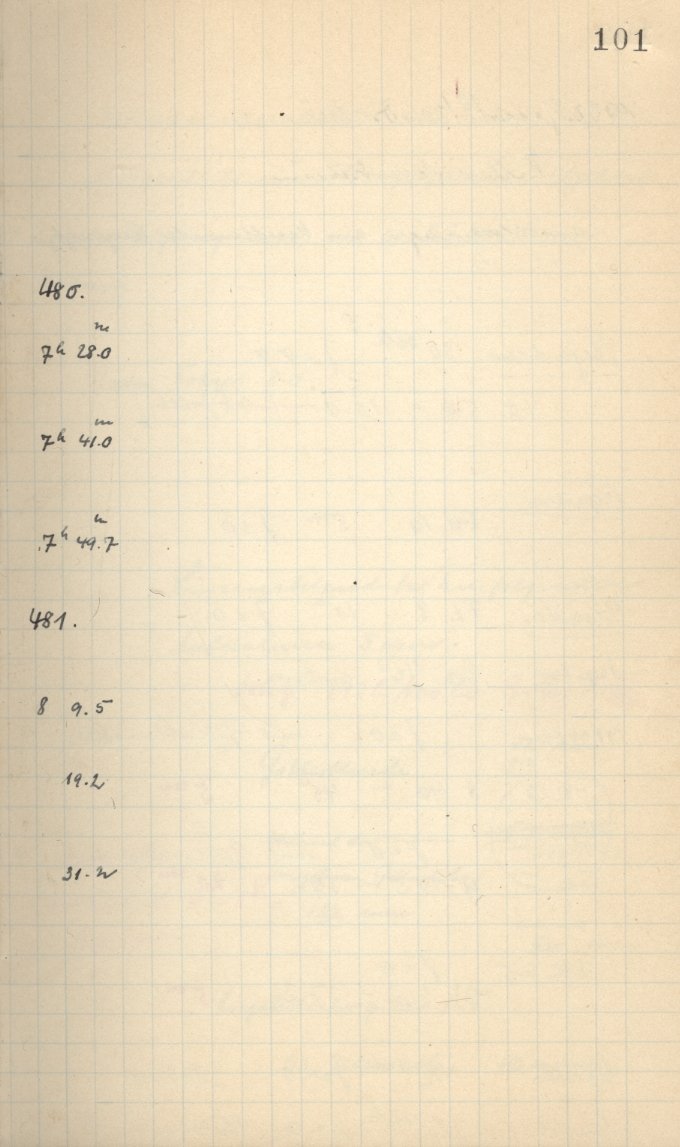 101
480.
7h 28.0m
7h 41.0m
7h 49.7m
481.
8 9.5
19.2
31.2